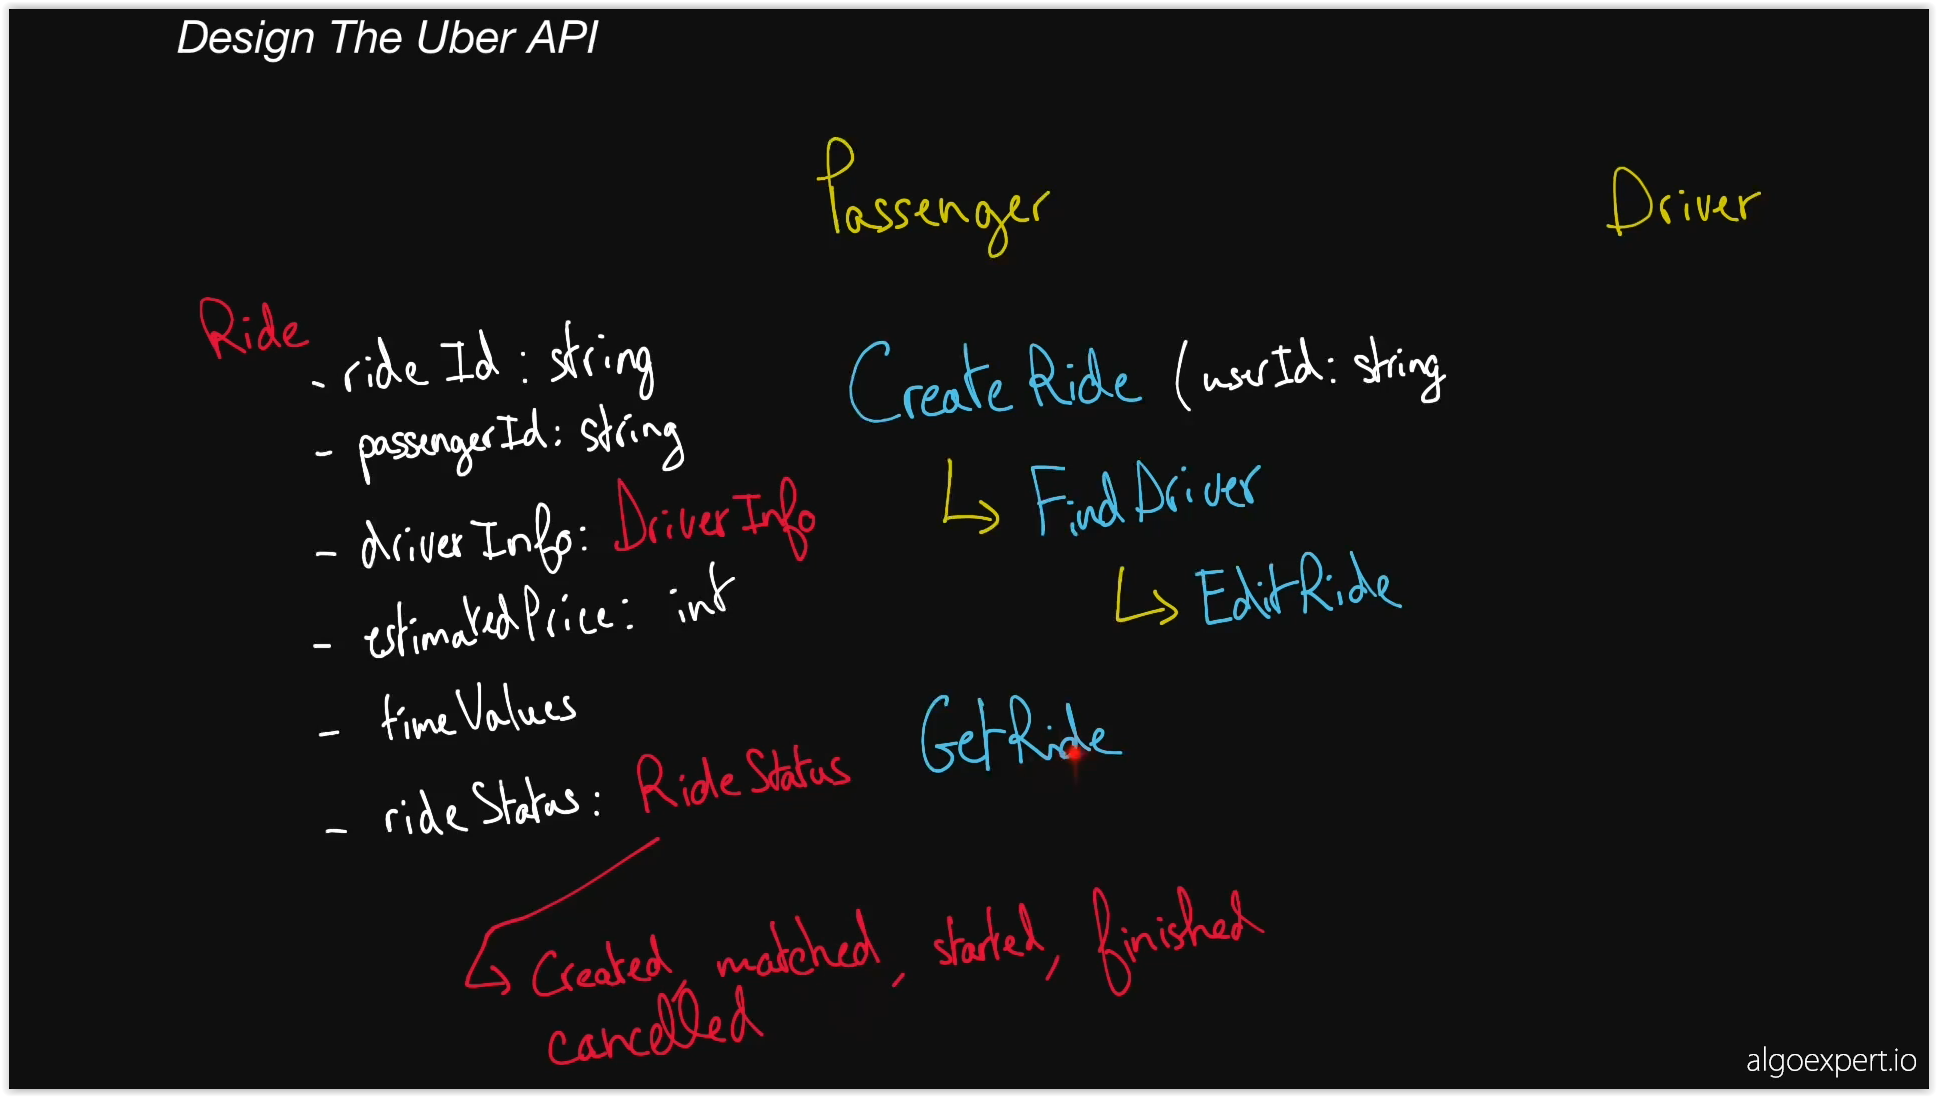 Design The Uber API
Passenger
Driver
Ride
- rideId: string
- passengerId: string
- driverInfo: DriverInfo
- estimatedPrice: int
- timeValues
- rideStatus: RideStatus
Created, matched, started, finished
cancelled
CreateRide (userId: string
FindDriver
EditRide
GetRide
algoexpert.io